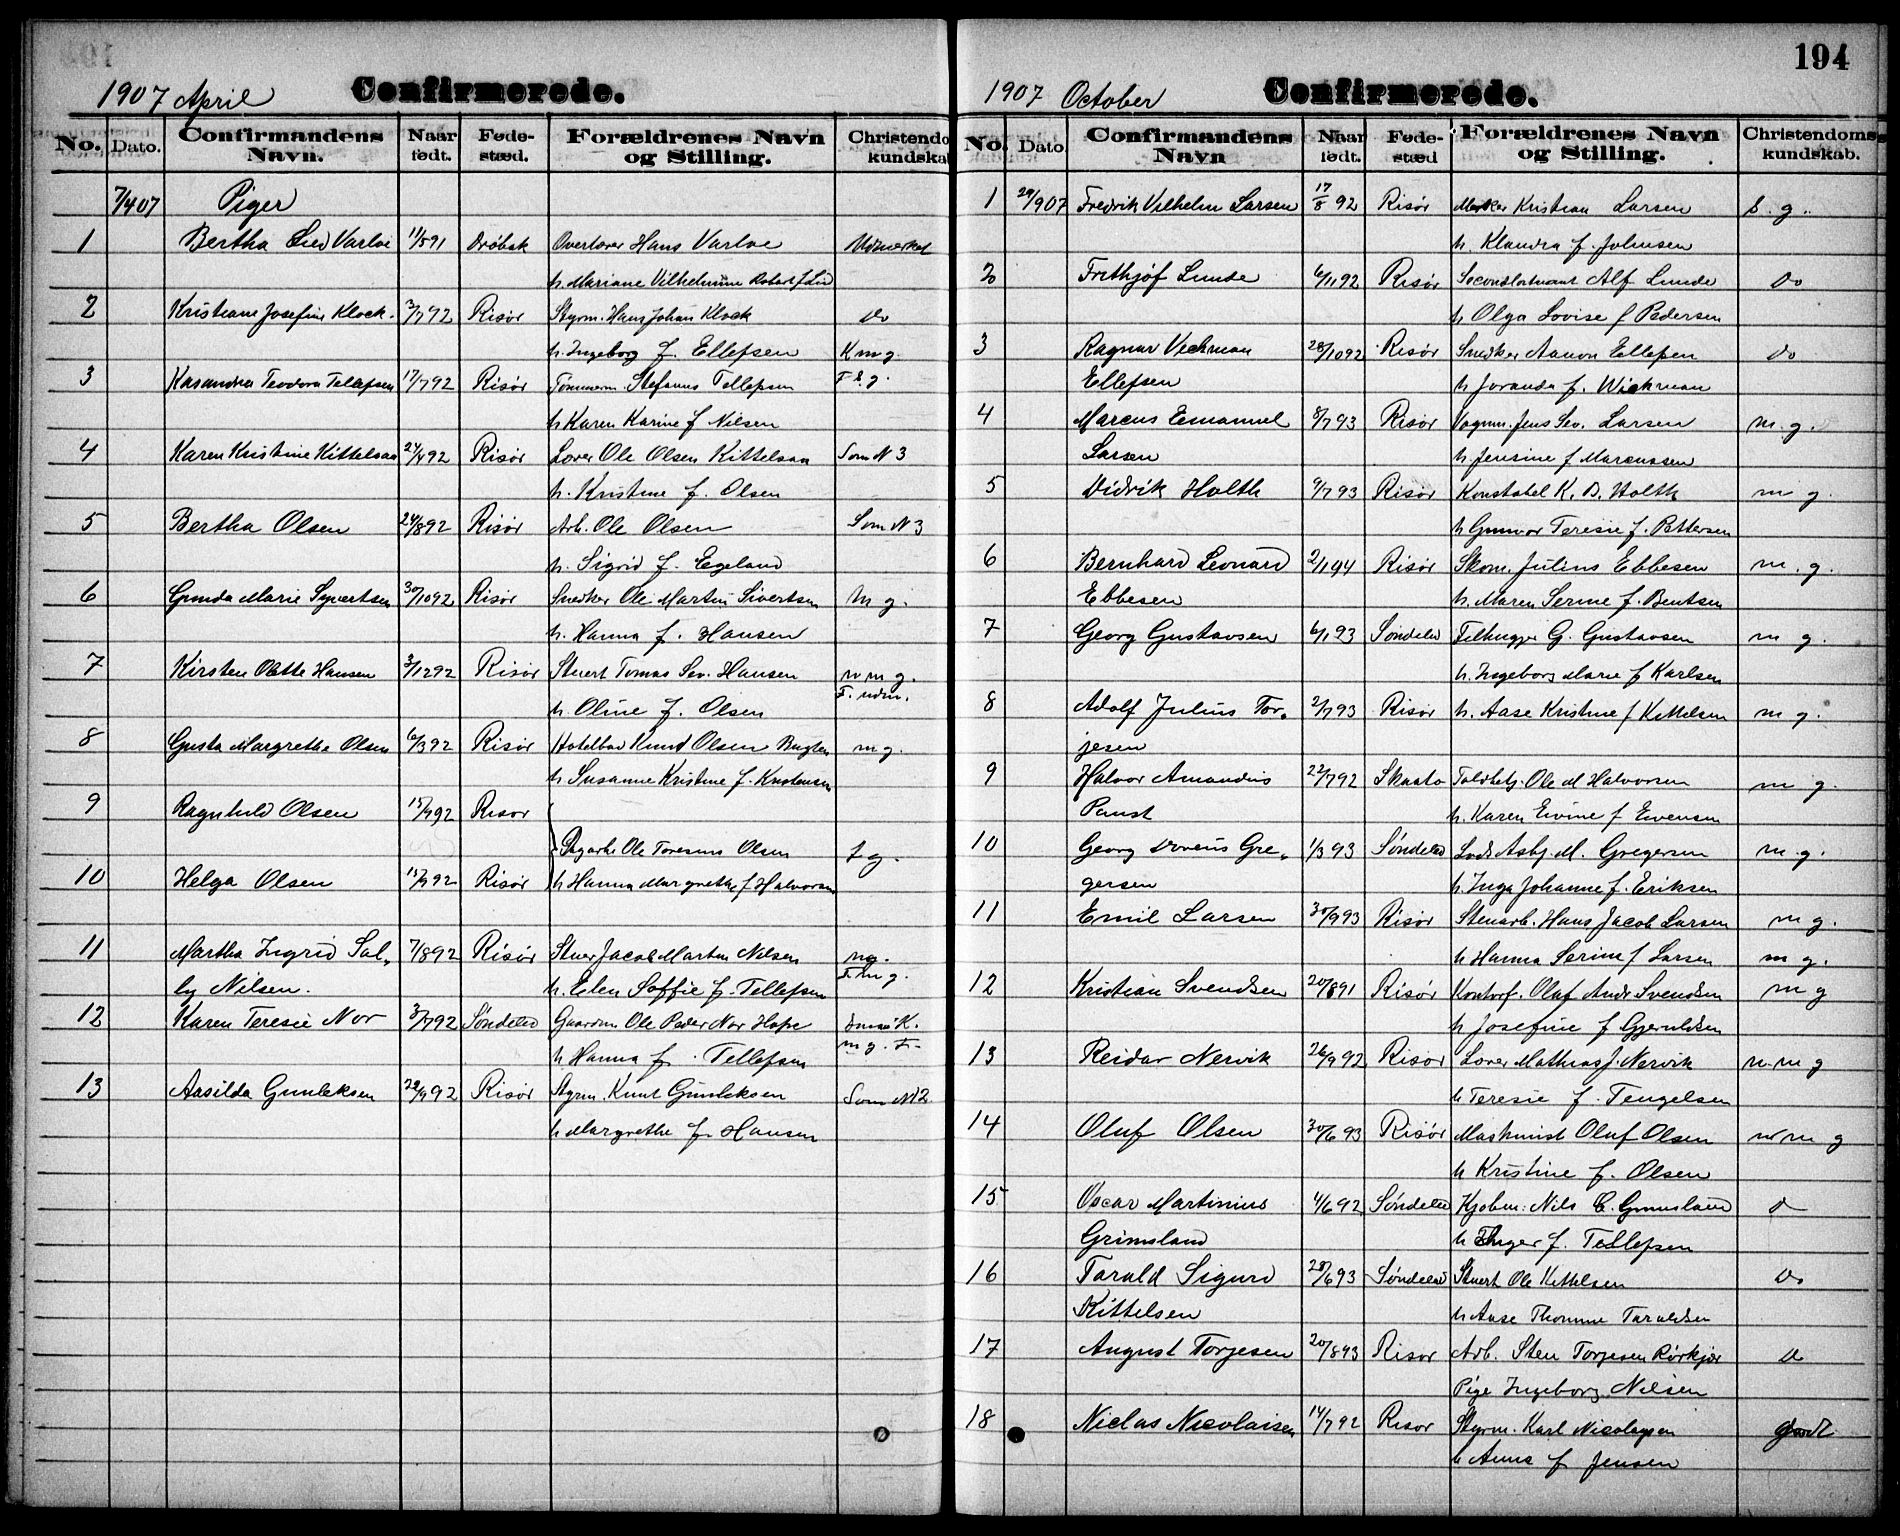 1907 April Confirmerede.
No. Dato. Confirmandens Navn. Naar født. Føde-stæd. Forældrenes Navn og Stilling. Christendo kundskab
7/4 07 Piger
1 Bertha Lied Varloe 11/5 91 Drøbak Overlærer Hans Varloe Udmærket
h. Mariane Vilhelmine Robert f Lie
2 Kristiane Josefine Klock. 3/7 92 Risør Styrm. Hans Johan Klock do
h. Ingeborg f. Ellefsen K m g.
3 Kasandra Teodora Tellefsen 17/7 92 Risør Tømmerm. Stefanus Tellefsen F s g.
h Karen Karine f Nilsen
4 Karen Kristine Kittelsen 24/4 92 Risør Lærer Ole Olsen Kittelsen Som N 3
h. Kristine f. Olsen
5 Bertha Olsen 24/8 92 Risør Arb. Ole Olsen Som N 3
h. Sigrid f. Egeland
6 Gunda Marie Syvertsen 30/10 92 Risør Snedker Ole Martin Sivertsen m g.
h. Hanna f. Hansen
7 Kirsten Olette Hansen 3/12 92 Risør Stuert Tomas Sev. Hansen n m g.
h. Oline f. Olsen F. udm.
8 Gusta Margrethe Olsen 6/3 92 Risør Knud Olsen m g.
h Susanne Kristine f. Kristensen
9 Ragnhild Olsen 15/7 92 Risør
Ole Toresius Olsen s g.
10 Helga Olsen 15/7 92 Risør h Hanna Margrethe f Halvorsen
11 Martha Ingrid Sal- 7/8 92 Risør Stuer Jacob Martin Nilsen ng.
ly Nilsen. h. Elen Soffie f. Tellefsen F m g.
12 Karen Teresie Nor 3/7 92 Søndeled Gaardm Ole Peder Nor Hope
h Hanna f. Tellefsen m g. F.
13 Aasilda Gunleksen 22/9 92 Risør Styrm. Knut Gunleksen Som N 12
h Margrethe f. Hansen
194
1907 October Confirmerede.
No. Dato Confirmandens Navn Naar født. Føde-stæd Forældrenes Navn og Stilling. Christendoms-kundskab.
1 29/9 07 Fredrik Vilhelm Larsen 17/8 92 Risør Kristian Larsen s. g.
h. Klandra f. Johnsen
2 Frithjof Lunde 6/11 92 Risør Secondløitnant Alf Lunde do
h Olga Lovise f Pedersen
3 Ragnar Vichman 28/10 92 Risør Snedker Aanon Ellefsen do
Ellefsen h Joranda f. Wickman
4 Marcus Emanuel 8/7 93 Risør Vognm. Jens Sev. Larsen m. g.
Larsen h Jensine f Marcussen
5 Didrik Holth 9/7 93 Risør Konstabel K. D. Holth m g.
h Gunvor Teresie f. Pettersen
6 Bernhard Leonard 2/1 94 Risør Skom. Julius Ebbesen m. g.
Ebbesen h. Maren Serine f. Bentsen
7 Georg Gustavsen 6/1 93 Søndeled Felhugger G. Gustavsen m g.
h. Ingeborg Marie f Karlsen
8 Adolf Julius Tor- 2/7 93 Risør h. Aase Kristine f Kittelsen m g.
jesen
9 Halvor Amandus 22/7 92 Skaatø Toldbetj. Ole M Halvorsen m g.
Paust h. Karen Eivine f Eivensen
10 Georg Doreus Gre- 1/3 93 Søndeled Lods Asbj. M. Gregersen m g.
gersen h. Inga Johanne f. Eriksen
11 Emil Larsen 30/9 93 Risør Stenarb. Hans Jacob Larsen m g.
h Hanna Serine f Larsen m g.
12 Kristian Svendsen 20/8 91 Risør Kontorf. Oluf Andr Svendsen m g
h Josefine f Gjeruldsen
13 Reidar Nervik 26/9 92 Risør Lærer Mathias J. Nervik n. m g
h Teresie f. Tengelsen
14 Oluf Olsen 30/6 93 Risør Maskinist Oluf Olsen n m g
h Kristine f. Olsen
15 Oscar Martinius 4/6 92 Søndeled Kjøbm. Nils C. Grimsland d
Grimsland h Inger f. Tellefsen
16 Tarald Sigurd 28/6 93 Søndeled Stuert Ole Kittelsen do
Kittelsen h Aase Thomine Taraldsen
17 August Torjesen 20/8 93 Risør Arb. Sten Torjesen Rørkjær do
Pige Ingeborg Nilsen
18 Niclas Nicolaisen 14/7 92 Risør Styrm. Karl Nicolaysen godt
h Anne f Jensen